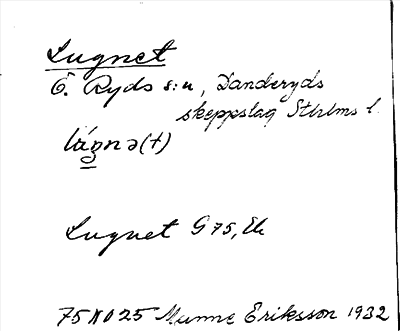 Lugnet
Ö. Ryds s:n, Danderyds
skeppslag Sthlms l.
lúgnə(t)
Lugnet G 75, Ek
75 NO 25 Manne Eriksson 1932